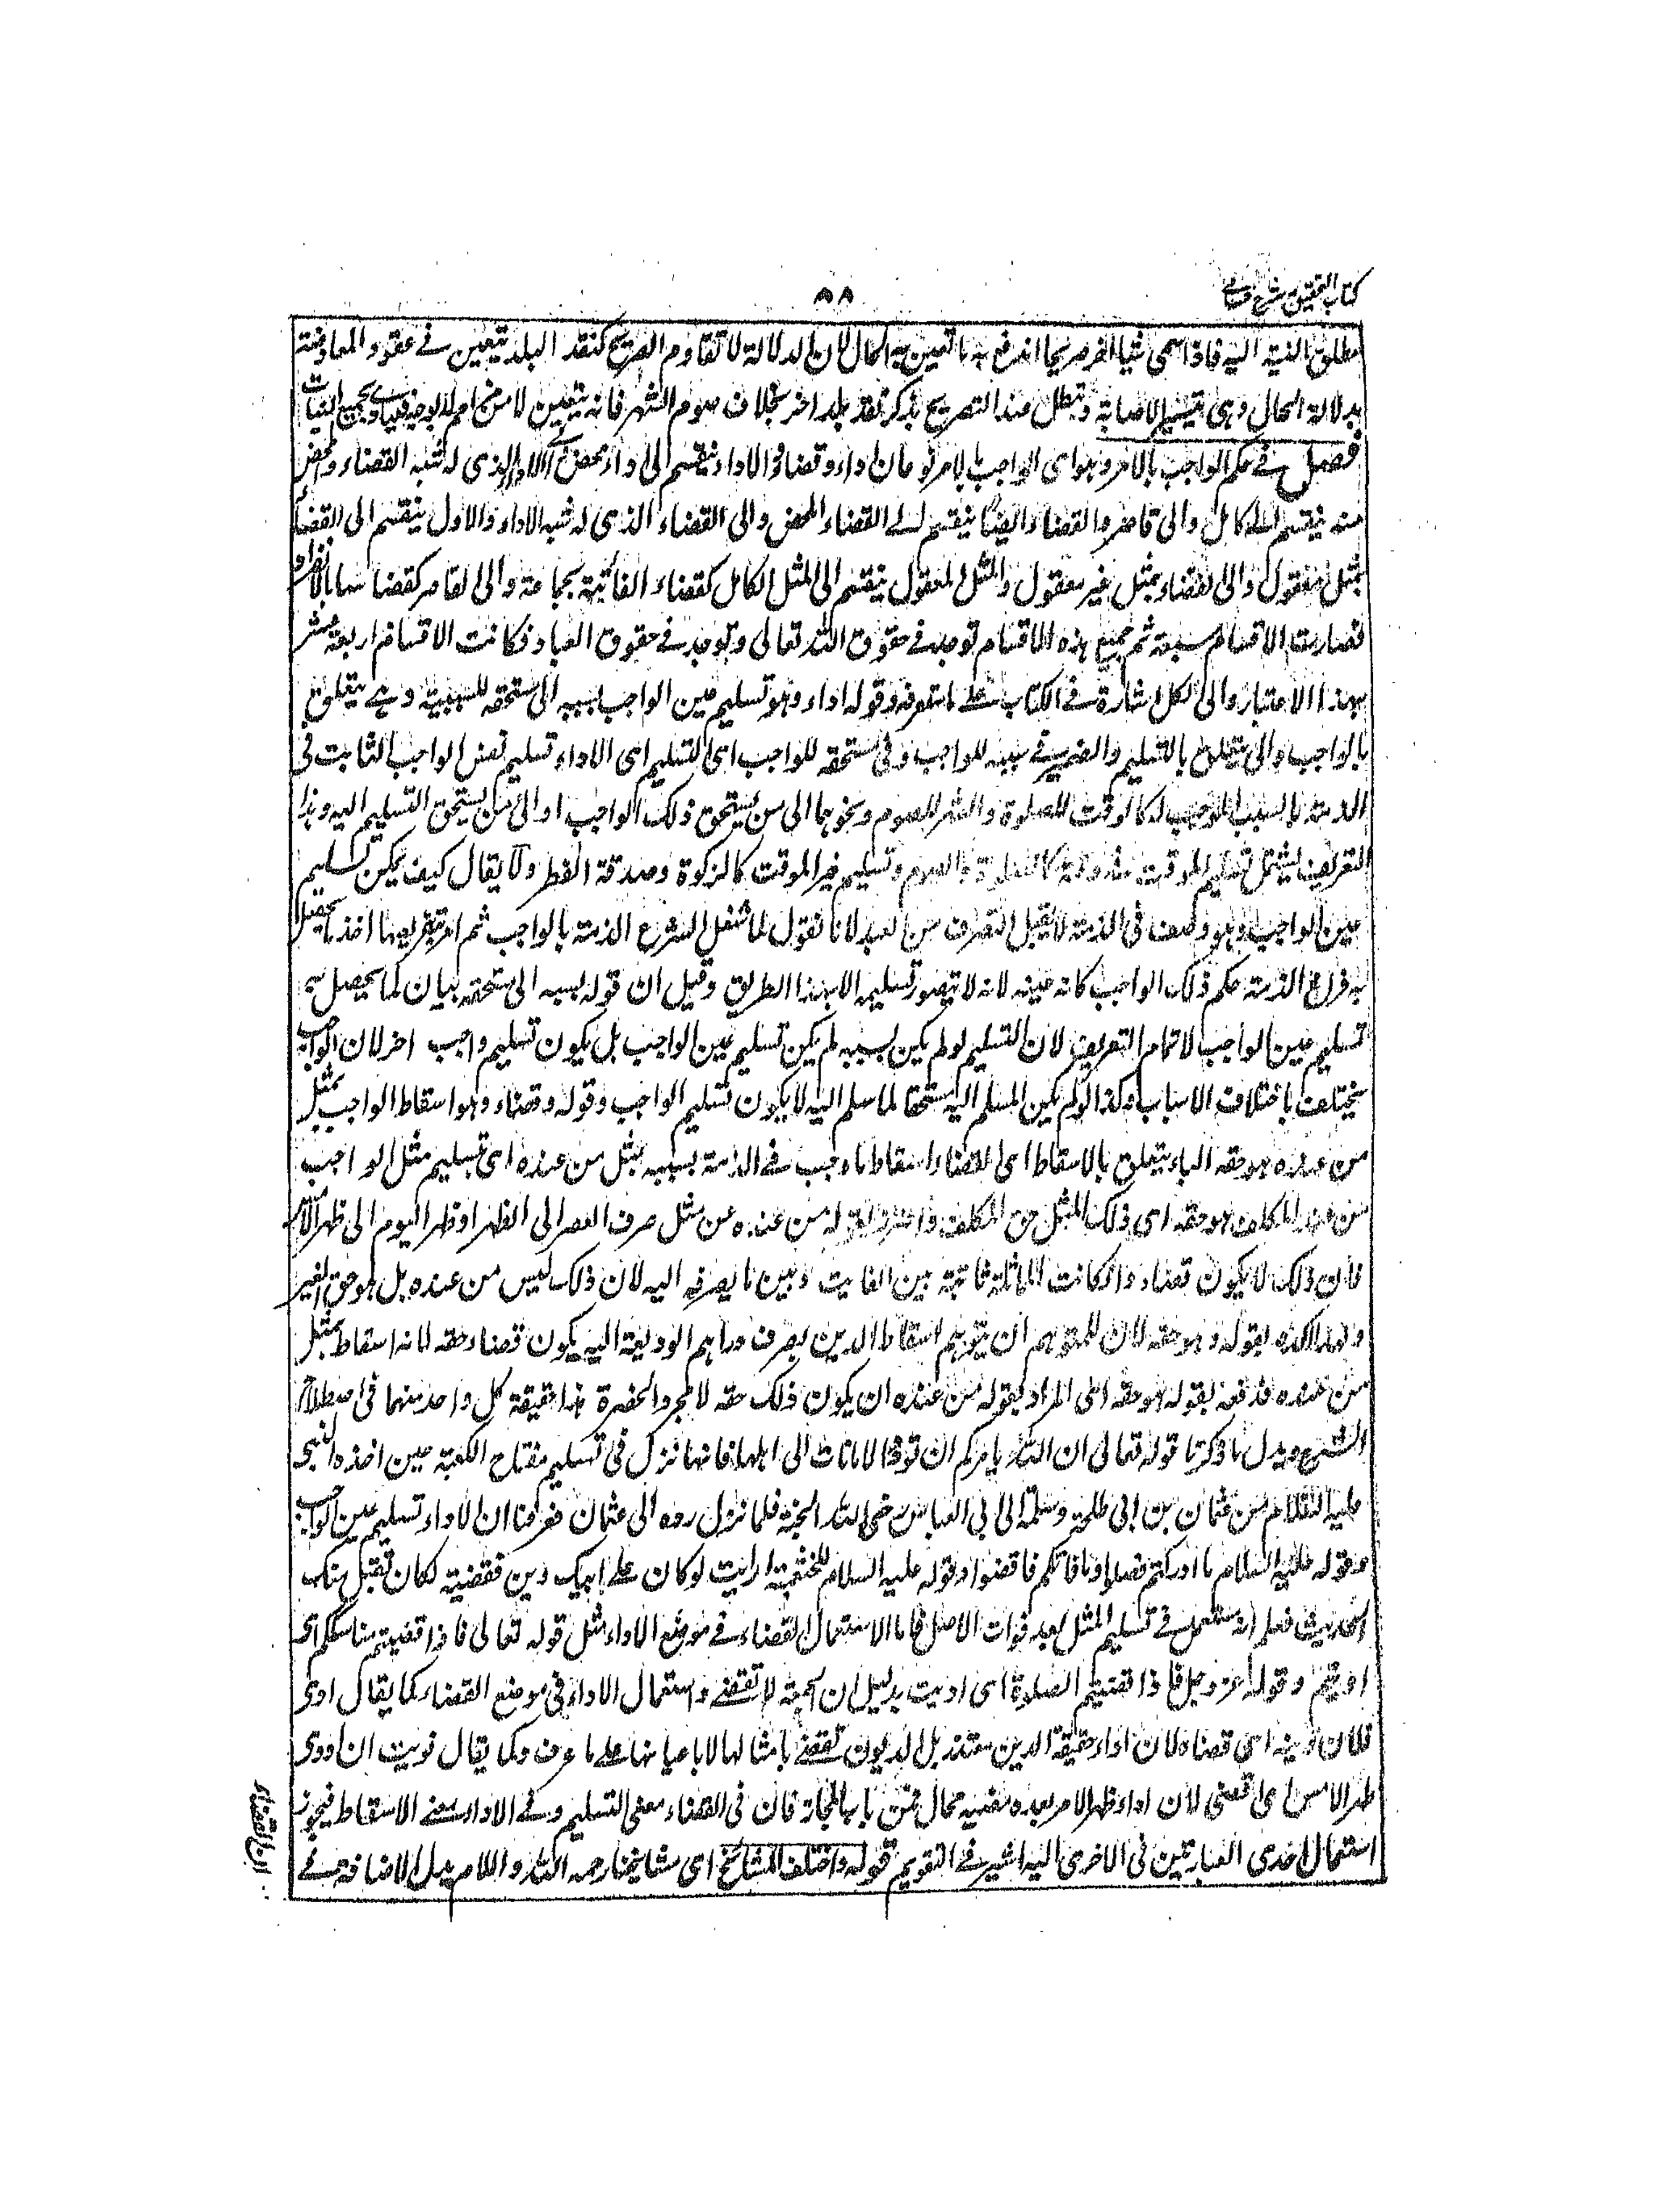 كتاب التحقيق شرح حسامى
٥٨
مطلق النية اليه فاذا سمى شيا اخر صريحا اندفع به ما تعين به الحال لان الدلالة لا تقاوم الصريح كنقد البلد يتعين فى عقود المعاوضة
بدلالة الحال وهى تيسير الاصابة وتبطل عند التصريح بذكر نقد بلد اخر بخلاف صوم الشهر فانه يتعين لا مزاحم له
فصل فى حكم الواجب بالامر وهو اى الواجب بالامر نوعان اداء وقضاء فالاداء ينقسم الى اداء محض والى الاداء الذى له شبه القضاء والمحض
منه ينقسم الى كامل والى قاصر والقضاء ايضا ينقسم الى القضاء المحض والى القضاء الذى له شبه الاداء والاول ينقسم الى القضاء
بمثل معقول والى القضاء بمثل غير معقول والمثل المعقول ينقسم الى المثل الكامل كقضاء الفائتة بجماعة والى القاصر كقضاءها بالانفراد
فصارت الاقسام سبعة ثم جميع هذه الاقسام توجد فى حقوق الله تعالى وتوجد فى حقوق العباد فكانت الاقسام اربعة عشر
بهذا الاعتبار والى الكل اشارة فى الكتاب على ما ستعرفه وقوله اداء وهو تسليم عين الواجب بسببه الى مستحقه للسببية وهى يتعلق
بالواجب والى يتعلق بالتسليم والضمير فى سببه للواجب وفى مستحقه للواجب اى التسليم اى الاداء تسليم نفس الواجب الثابت فى
الذمة بالسبب الموجب له كالوقت للصلوة والشهر للصوم ونحوهما الى من يستحق ذلك الواجب او الى من يستحق التسليم اليه وهذا
التعريف يشتمل تسليم الموقت فى وقته كالصلوة والصوم وتسليم غير الموقت كالزكوة وصدقة الفطر ولا يقال كيف يمكن تسليم
عين الواجب وهو وصف فى الذمة لا يقبل التصرف من العبد لانا نقول لما شغل الشرع الذمة بالواجب ثم امر بتفريغها اخذ ما يحصل
به فراغ الذمة حكم ذلك الواجب كانه عينه لانه لا يتصور تسليمه الا بهذا الطريق وقيل ان قوله بسببه الى مستحقه بيان لما يحصل به
تسليم عين الواجب لا تمام التعريف لان التسليم لو لم يكن بسببه لم يكن تسليم عين الواجب بل يكون تسليم واجب اخر لان الواجب
يختلف باختلاف الاسباب وكذا لو لم يكن المسلم اليه مستحقا لما سلم اليه لا يكون تسليم الواجب وقوله وقضاء وهو اسقاط الواجب بمثل
من عنده هو حقه الباء يتعلق بالاسقاط اى القضاء اسقاط ما وجب فى الذمة بسببه بمثل من عنده اى تسليم مثل الواجب
من عند المكلف هو حقه اى ذلك المثل حق المكلف واحترز بقوله من عنده عن مثل صرف العصر الى الظهر او ظهر اليوم الى ظهر الامس
فان ذلك لا يكون قضاء وان كانت المماثلة ثابتة بين الفايت وبين ما يصرفه اليه لان ذلك ليس من عنده بل هو حق الغير
ولهذا اكده بقوله وهو حقه لان للمتوهم ان يتوهم اسقاط الدين بصرف دراهم الوديعة اليه يكون قضاء حقه لانه اسقاط بمثل
من عنده فدفعه بقوله هو حقه اى المراد بقوله من عنده ان يكون ذلك حقه لا مجرد الحضرة هذا حقيقة كل واحد منهما فى اصطلاح
الشرع ويدل ما ذكرنا قوله تعالى ان الله يامركم ان تودوا الامانات الى اهلها فانها نزل فى تسليم مفتاح الكعبة حين اخذه النبى
عليه السلام من عثمان بن ابى طلحة وسلمه الى ابى العباس رضى الله عنه فلما نزول رده الى عثمان فعرفنا ان الاداء تسليم عين الواجب
وقوله عليه السلام ما ادركتم فصلوا وما فاتكم فاقضوا وقوله عليه السلام للخثعمية ارايت لو كان على ابيك دين فقضيته لكان تقبل منك
الحديث فعلم انه مستعمل فى تسليم المثل بعد فوات الاصل فاما الاستعمال القضاء فى موضع الاداء مثل قوله تعالى فاذا قضيتم مناسككم اى
اديتم وقوله عز وجل فاذا قضيتم الصلوة اى اديت بدليل ان الجمعة لا تقضى واستعمال الاداء فى موضع القضاء كما يقال ادى
فلان دينه اى قضاه لان اداء حقيقة الدين متعذر بل الديون تقضى بامثالها لا باعيانها على ما عرف وكما يقال نويت ان اودى
ظهر الامس اى اقضى لان اداء ظهر الامس بعده مضيه محال فمن باب المجاز فان فى القضاء معنى التسليم وفى الاداء معنى الاسقاط فيجوز
استعمال احدى العبارتين فى الاخرى اليه اشير فى التقويم قوله واختلف المشائخ اى مشايخنا رحمه الله واللام بدل الاضافة فى
ان القضاء